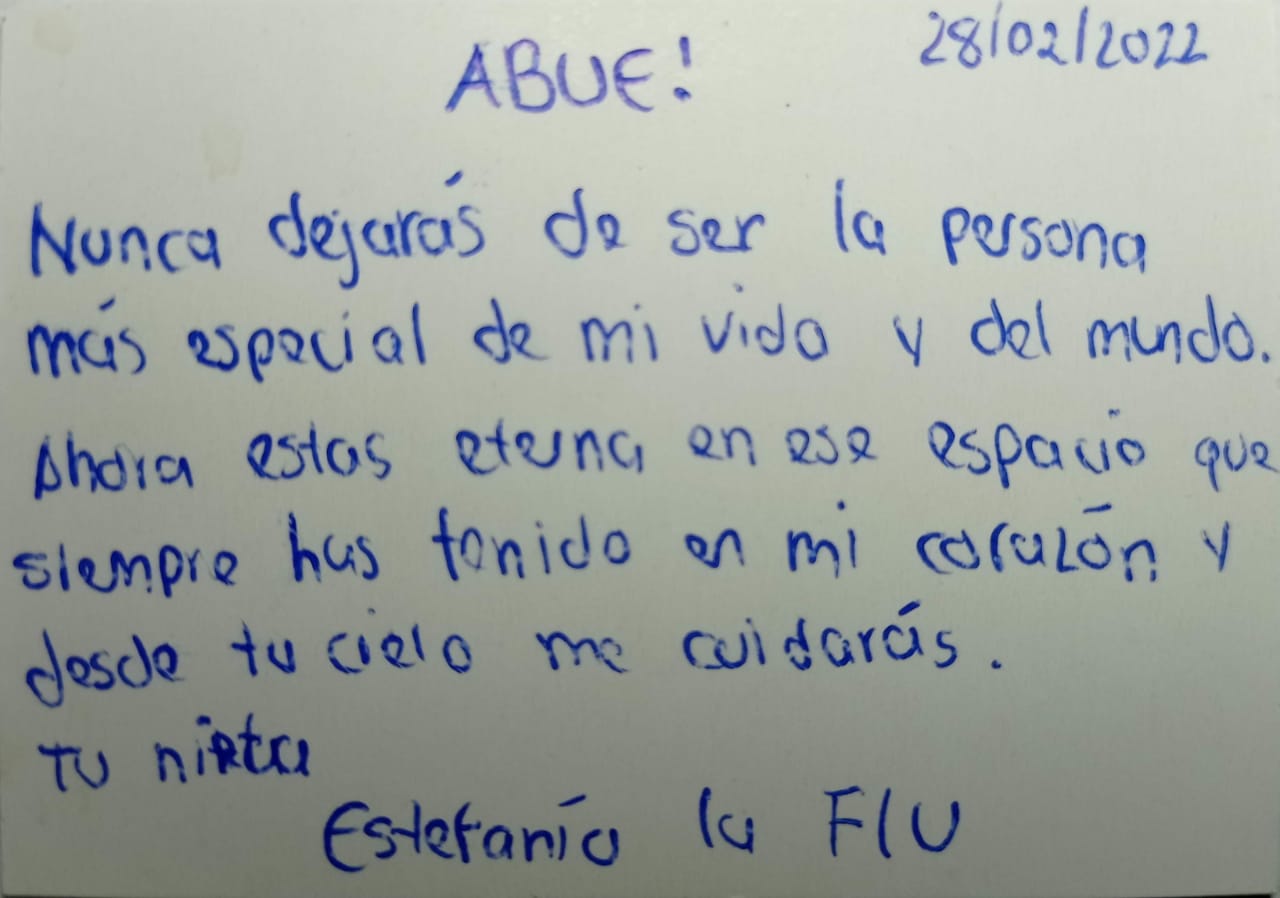 28/02/2022
ABUE!
Nunca dejarás de ser la persona
más especial de mi vida y del mundo.
Ahora estas eterna en ese espacio que
siempre has tenido en mi corazón y
desde tu cielo me cuidarás.
Tu nieta
Estefanía la FlU